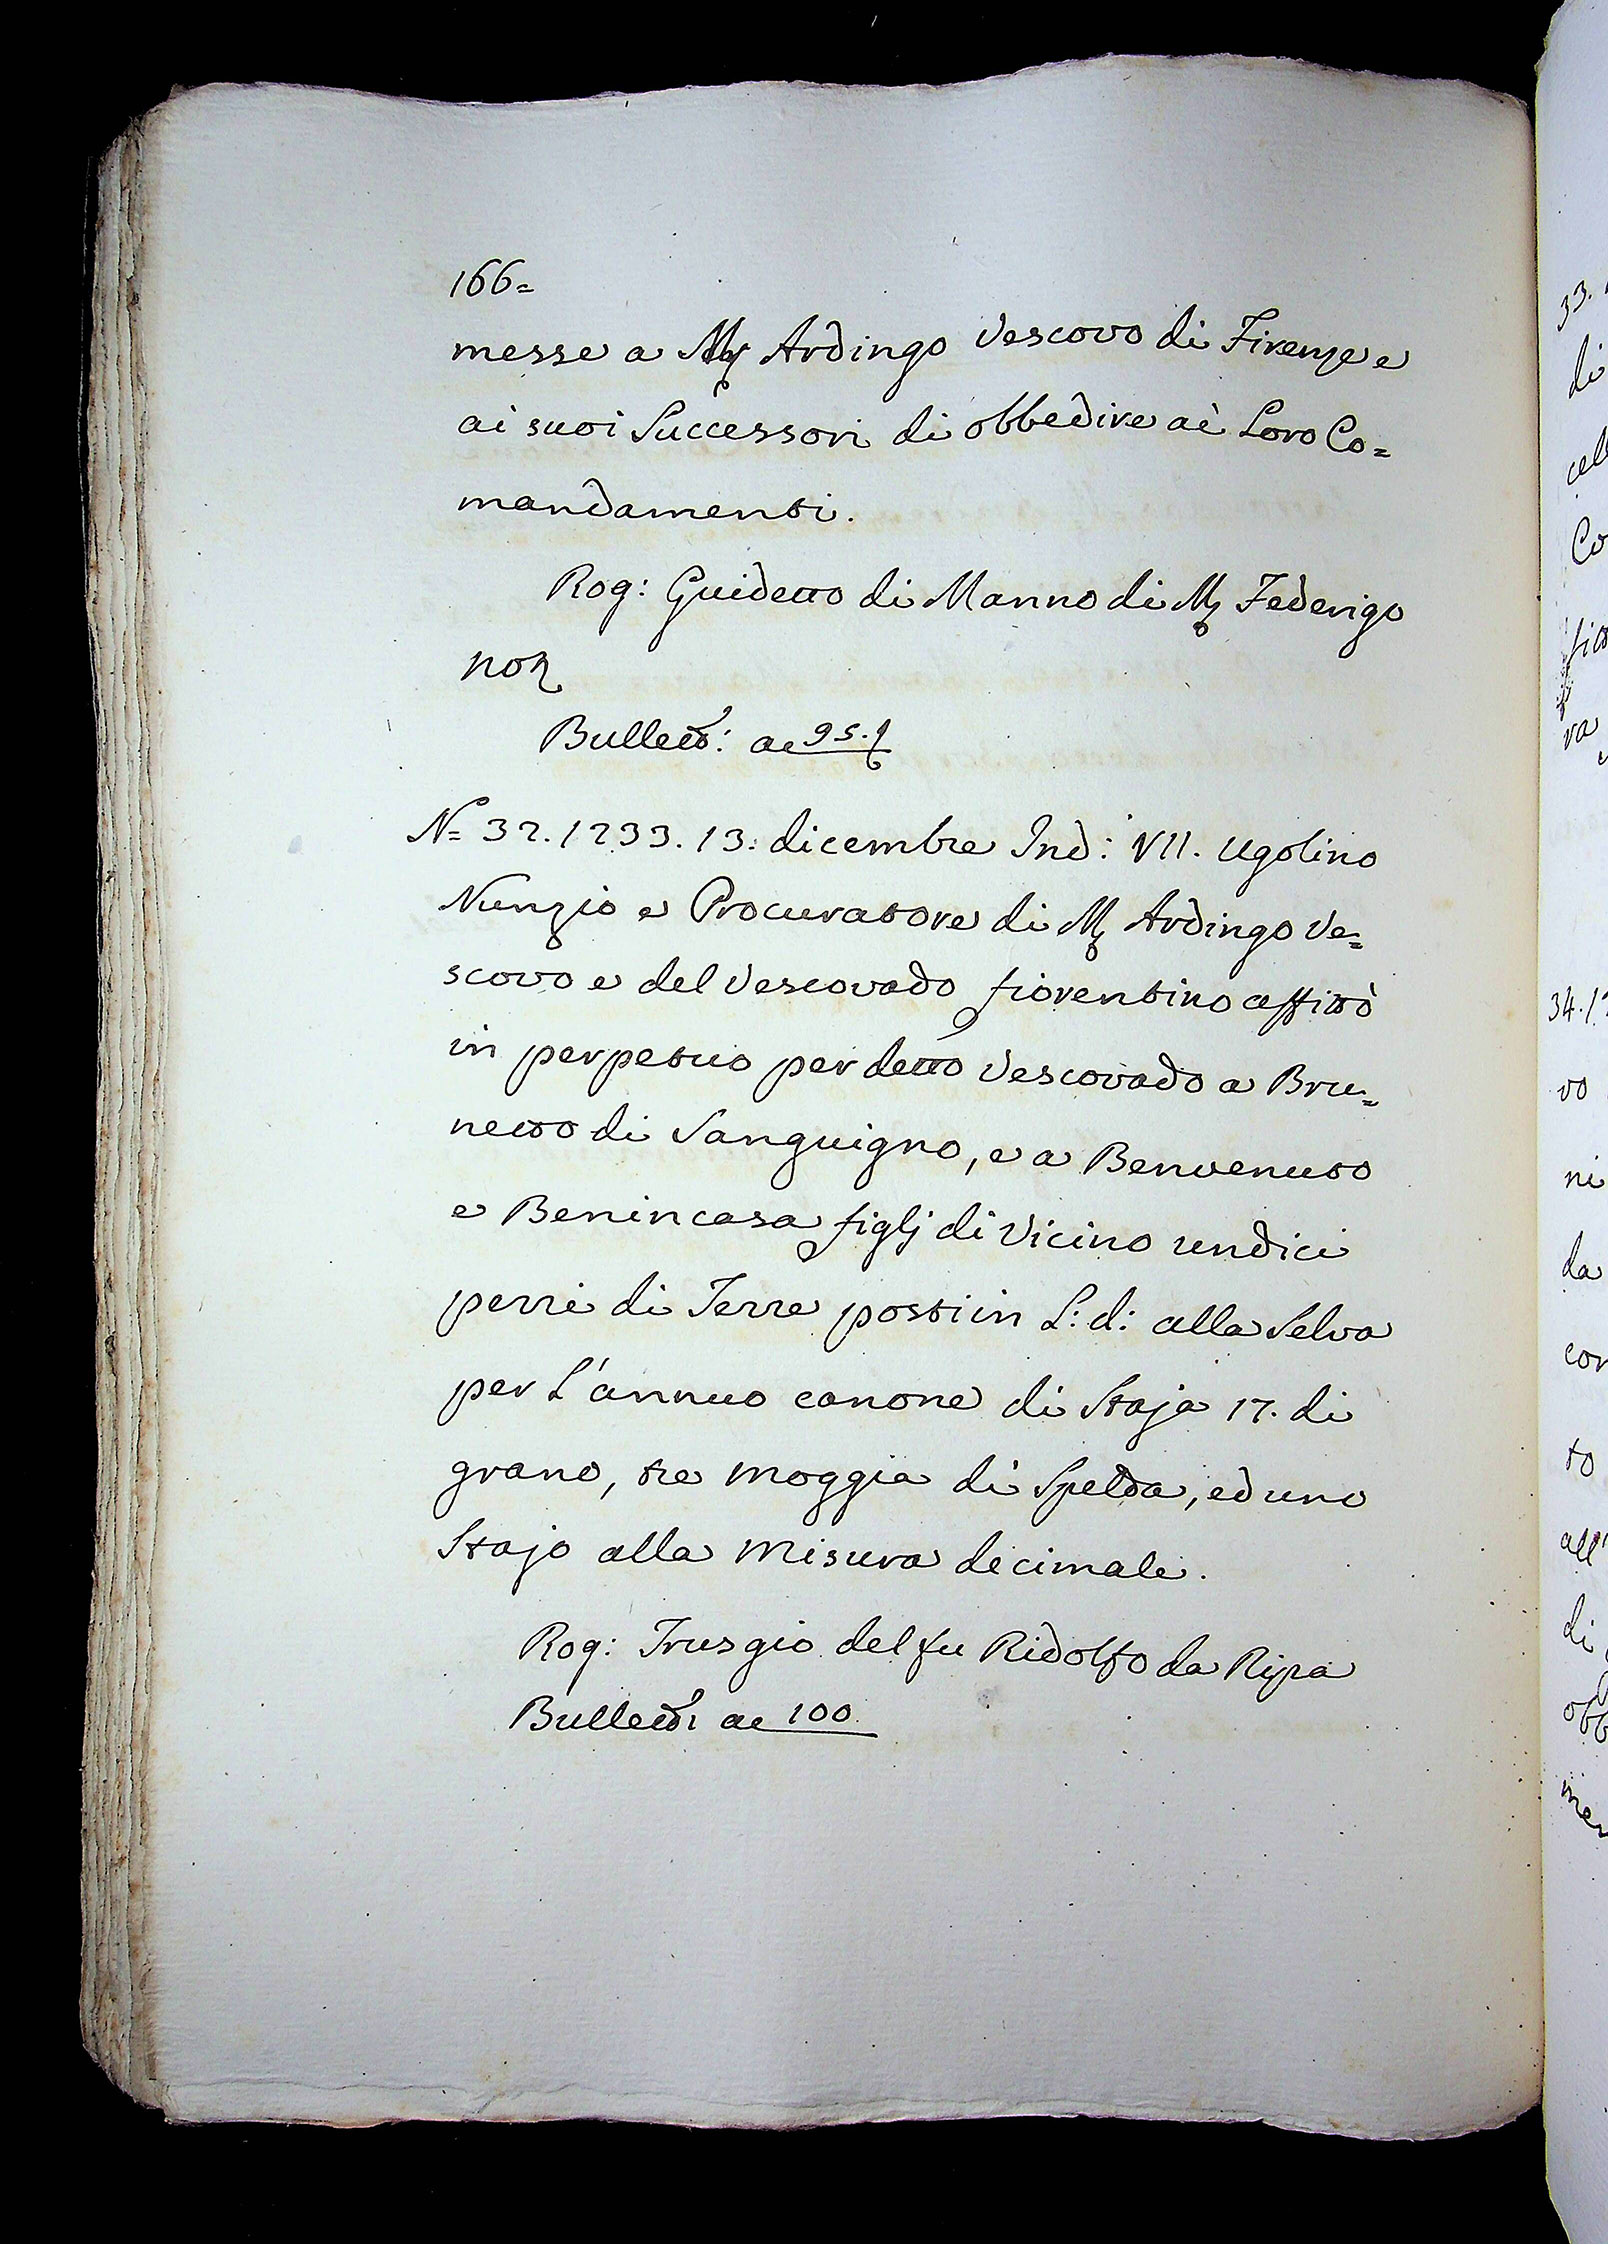 166=
messe a Mꝫ Ardingo Vescovo di Firenze e
ai suoi Successori di obbedire aì Loro Co=
mandamenti.
Rog: Guidetto di Manno di Mꝫ Federigo
noꝫ
Bullett: ac 95.
N= 32. 1233. 13: dicembre Ind: VII. Ugolino
Nunzio e Procuratore di Mꝫ Ardingo Ve=
scovo e del Vescovado fiorentino affittò
in perpetuo per detto Vescovado a Bru=
netto di Sanguigno, e a Benvenuto
e Benincasa figlj di Vicino undici
pezzi di Terre posti in L: d: alla Selva
per L'annuo canone di Staja 17. di
grano, tre moggia di Spelda, ed uno
Stajo alla misura decimale.
Rog: Trusgio del fu Ridolfo da Ripa
Bullett: ac 100
33.
di
cell
Co
fitt
va
34. 12
vo
ni
da
con
to
all'
di
obb
men